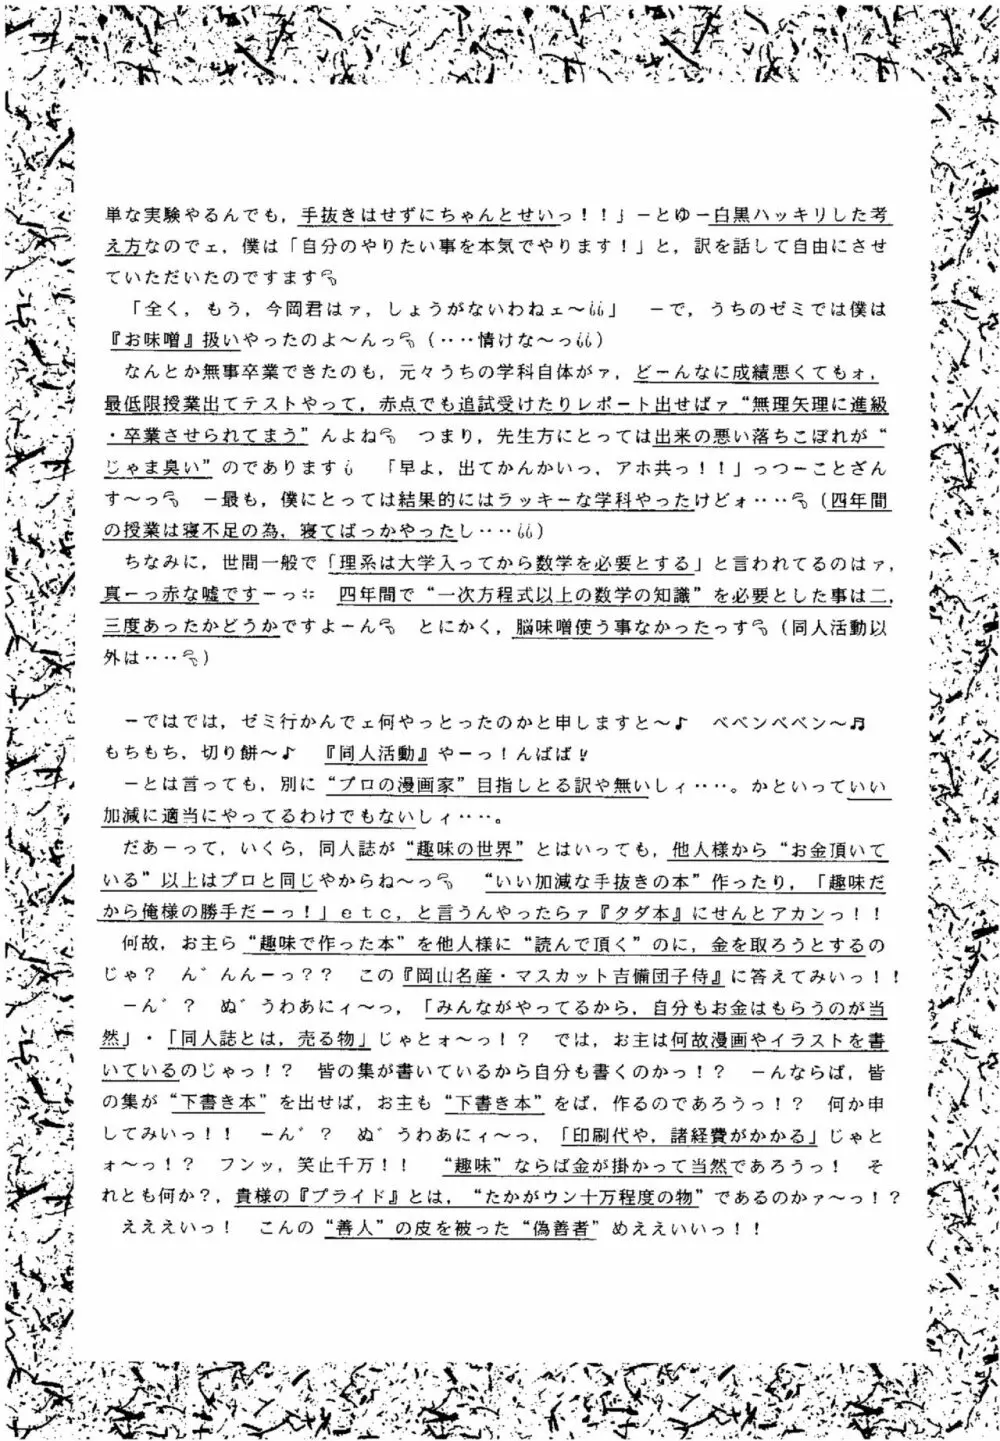 単な実験やるんでも，手抜きはせずにちゃんとせいっ！！」－とゆ－白黒ハッキリした考
え方なのでェ，僕は「自分のやりたい事を本気でやります！」と，訳を話して自由にさせ
ていただいたのですます
「全く，もう，今岡君はァ，しょうがないわねェ～」　－で，うちのゼミでは僕は
『お味噌』扱いやったのよ～んっ（‥‥情けな～っ）
なんとか無事卒業できたのも，元々うちの学科自体がァ，どーんなに成績悪くてもォ，
最低限授業出てテストやって，赤点でも追試受けたりレポート出せばァ“無理矢理に進級
・卒業させられてまう”んよね　つまり，先生方にとっては出来の悪い落ちこぼれが“
じゃま臭い”のであります　「早よ，出てかんかいっ，アホ共っ！！」っつーことざん
す～っ　－最も，僕にとっては結果的にはラッキーな学科やったけどォ‥‥（四年間
の授業は寝不足の為，寝てばっかやったし‥‥）
ちなみに，世間一般で「理系は大学入ってから数学を必要とする」と言われてるのはァ，
真ーっ赤な嘘ですーっ　四年間で“一次方程式以上の数学の知識”を必要とした事は二，
三度あったかどうかですよーん　とにかく，脳味噌使う事なかったっす（同人活動以
外は‥‥）
－ではでは，ゼミ行かんでェ何やっとったのかと申しますと～♪　ベベンベベン～♬
もちもち，切り餅～♪　『同人活動』やーっ！んばば！
－とは言っても，別に“プロの漫画家”目指しとる訳や無いしィ‥‥。かといっていい
加減に適当にやってるわけでもないしィ‥‥。
だあーって，いくら，同人誌が“趣味の世界”とはいっても，他人様から“お金頂いて
いる”以上はプロと同じやからね～っ　“いい加減な手抜きの本”作ったり，「趣味だ
から俺様の勝手だーっ！」ｅｔｃ，と言うんやったらァ『タダ本』にせんとアカンっ！！
何故，お主ら“趣味で作った本”を他人様に“読んで頂く”のに，金を取ろうとするの
じゃ？　ん゛んんーっ？？　この『岡山名産・マスカット吉備団子侍』に答えてみいっ！！
－ん゛？　ぬ゛うわあにィ～っ，「みんながやってるから，自分もお金はもらうのが当
然」・「同人誌とは，売る物」じゃとォ～っ！？　では，お主は何故漫画やイラストを書
いているのじゃっ！？　皆の集が書いているから自分も書くのかっ！？　－んならば，皆
の集が“下書き本”を出せば，お主も“下書き本”をば，作るのであろうっ！？　何か申
してみいっ！！　－ん゛？　ぬ゛うわあにィ～っ，「印刷代や，諸経費がかかる」じゃと
ォ～っ！？　フンッ，笑止千万！！　“趣味”ならば金が掛かって当然であろうっ！　そ
れとも何か？，貴様の『プライド』とは，“たかがウン十万程度の物”であるのかァ～っ！？
えええいっ！　こんの“善人”の皮を被った“偽善者”めええいいっ！！